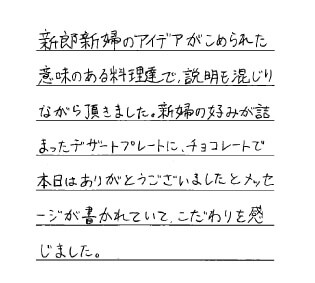 新郎新婦のアイデアがこめられた
意味のある料理達で､説明も混じり
ながら頂きました。新婦の好みが詰
まったデザートプレートに､チョコレートで
本日はありがとうございましたとメッセ
ージが書かれていて､こだわりを感
じました。